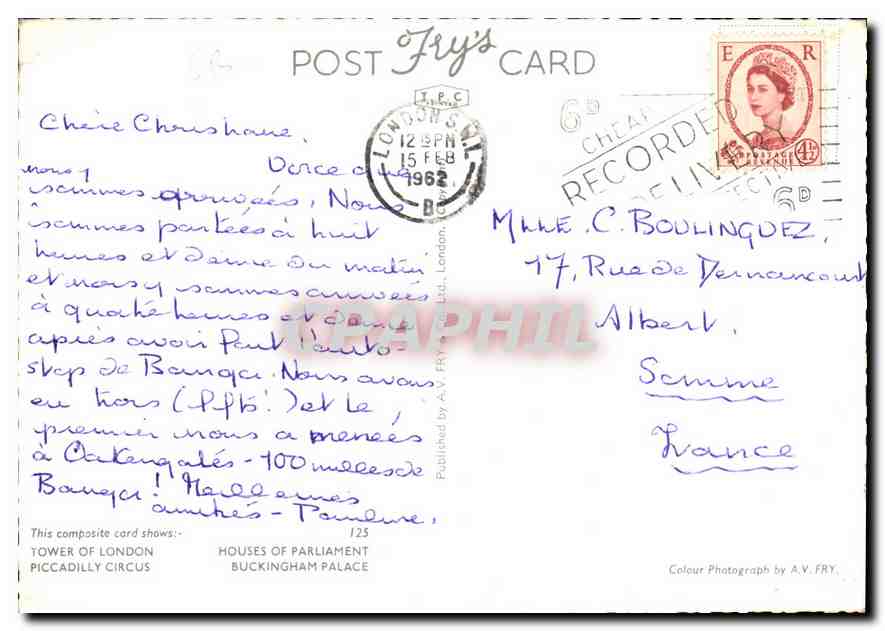 POST Fry's CARD
T.P.C
LONDON S.W.1.
12 15 PM
15 FEB
1962
B
6D
CHEAP
RECORDED
DELIVERY
6D
E R
POSTAGE
REVENUE
4½D
Chère Christiane,
Voici que
nous y
sommes arrivées. Nous
sommes partées à huit
heures et demie du matin
et nous y sommes arrivées
à quatre heures et demie
après avoir fait l'auto-
stop de Bangor. Nous avons
eu trois (lifts!) et le
premier nous a menées
à Oakengates - 100 milles de
Bangor! Meilleures
amitiés - Pauline.
MLLE. C. BOULINGUEZ,
17, Rue de Dernancourt
Albert,
Somme
France
Published by A.V. FRY & Co. Ltd., London.
CPAPHIL
This composite card shows:- 125
TOWER OF LONDON HOUSES OF PARLIAMENT
PICCADILLY CIRCUS BUCKINGHAM PALACE
Colour Photograph by A.V. FRY.